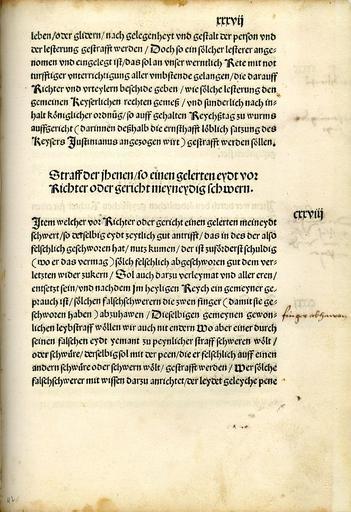 xxxvij
leben/oder glidern/nach gelegenheyt vnd gestalt der person vnd
der lesterung gestrafft werden/Doch so ein sölcher lesterer ange-
nomen vnd eingelegt ist/das sol an vnser werntlich Rete mit not
turfftiger vnterrichtigung aller vmbstende gelangen/die darauff
Richter vnd vrteylern bescheide geben/wie sölche lesterung den
gemeinen Keyserlichen rechten gemeß/vnd sunderlich nach in-
halt königlicher ordnūg/so auff gehalten Reychßtag zu wurms
auffgericht (darinnen deßhalb die ernsthafft löblich satzung des
Keysers Justinianus angezogen wirt) gestrafft werden söllen.
Straff der jhenen/so einen gelerten eydt vor
Richter oder gericht meyneydig schwern.
cxxviij
Jtem welcher vor Richter oder gericht einen gelerten meineydt
schwert/so derselbig eydt zeytlich gut antrifft/das in des der also
felschlich geschworen hat/nutz kumen/der ist zuförderst schuldig
(wo er das vermag) sölch felschlich abgeschworen gut dem ver-
letzten wider zukern/Sol auch darzu verleymat vnd aller eren/
entsetzt sein/vnd nachdem jm heyligen Reych ein gemeyner ge-
prauch ist/sölchen falschschwerern die zwen finger (damit sie ge-
schworen haben) abzuhawen/Dieselbigen gemeynen gewon-
lichen leybstraff wöllen wir auch nit endern Wo aber einer durch
seinen falschen eydt yemant zu peynlicher straff schweren wölt/
oder schwüre/derselbig sol mit der peen/die er felschlich auff einen
andern schwüre oder schwern wölt/gestrafft werden/Wer sölche
falschschwerer mit wissen darzu anrichtet/der leydet geleyche pene
finger abhawen